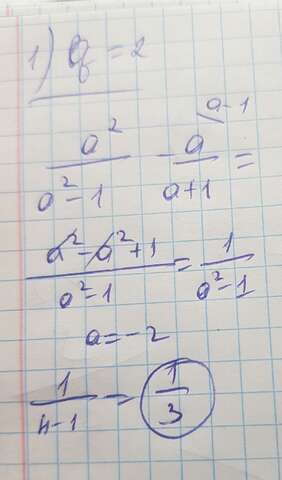 1) a = 2
a² / (a² - 1) - a / (a + 1) \ a - 1 =
(a² - a² + 1) / (a² - 1) = 1 / (a² - 1)
a = -2
1 / (4 - 1) = 1 / 3